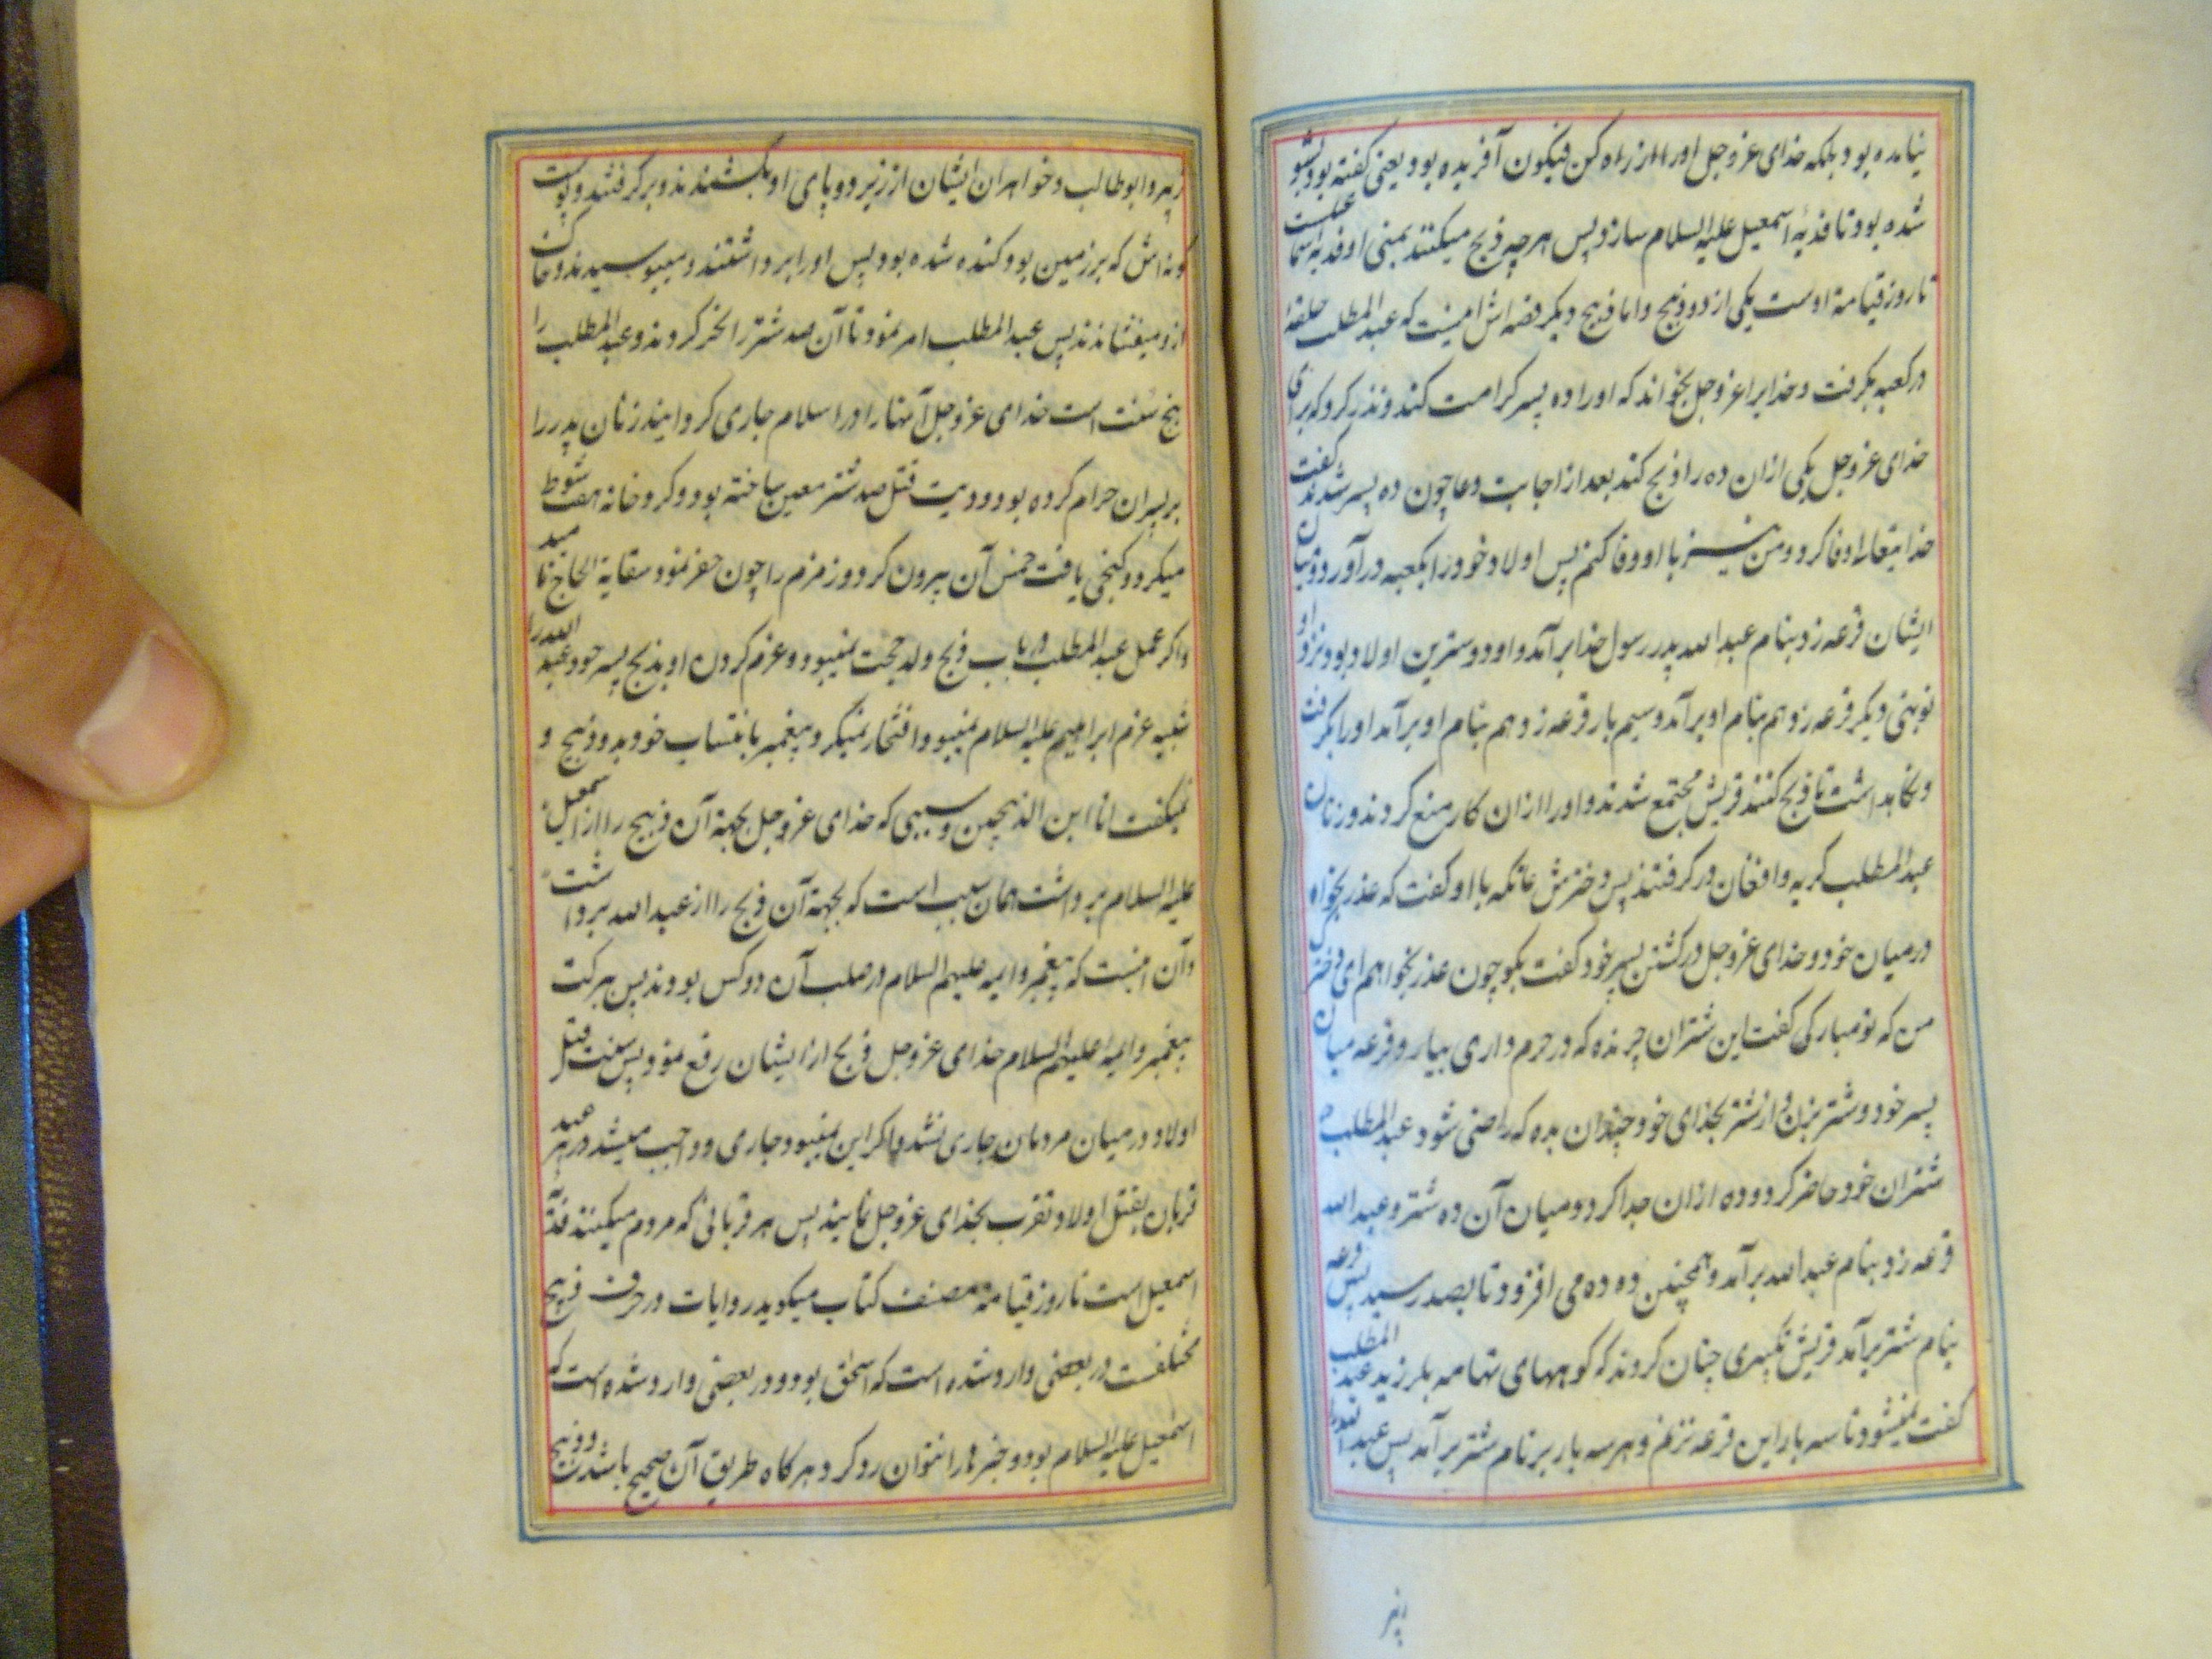 نیامده بود بلکه خدای عزوجل اورا از راه کن فیکون آفریده بود یعنی کفته بود بشو
شده بود تا فدیهٔ اسمعیل علیه السلام سازد پس هر چه ذبح میکنند بمنی او فدیه اسمعیلست
تا روز قیامة اوست یکی از دو ذبیح و اما ذبیح دیکر قصه اش اینست که عبد المطلب حلقهٔ
در کعبه بکرفت و خدایرا عزوجل بخواند که اورا ده پسر کرامت کند و نذر کرد که برای
خدای عزوجل یکی ازان ده را ذبح کند بعد از اجابت دعا چون ده پسر شدند کفت
خدایتعالی اوفا کرد و من نیز با او وفا کنم پس اولاد خود را بکعبه در آورد و میان
ایشان قرعه زد بنام عبد الله پدر رسول خدا برآمد و او دوسترین اولاد بود نزد او
نوبتی دیکر قرعه زد هم بنام او برآمد و سیم بار قرعه زد هم بنام او برآمد اورا بکرفت
و نکاهداشت تا ذبح کنند قریش مجتمع شدند و اورا ازان کار منع کردند و زنان
عبد المطلب کریه و افغان در کرفتند پس دخترش عاتکه با او کفت که عذر بخواه
در میان خود و خدای عزوجل در کشتن پسر خود کفت بکو چون عذر بخواهم ای دختر
من که تو مبارکی کفت این شتران چرنده که در حرم داری بیار و قرعه میان
پسر خود و شتر بزن و از شتر بخدای خود چندان بده که راضی شود عبد المطلب
شتران خود حاضر کرد و ده ازان جدا کرد و میان آن ده شتر و عبد الله
قرعه زد بنام عبد الله برآمد و همچنین ده ده می افزود تا بصد رسید پس قرعه
بنام شتر برآمد قریش تکبیری چنان کردند که کوههای تهامه بلرزید عبد المطلب
کفت نمیشود تا سه بار این قرعه نزنم و هر سه بار بر نام شتر برآمد پس عبد الله را
زبیر
زبیر و ابو طالب و خواهران ایشان از زیر دو پای او بکشیدند و بر کرفتند و پوست
کونه اش که بر زمین بود کنده شده بود پس اورا برداشتند و میبوسیدند و خاک
ازو میفشاندند پس عبد المطلب امر نمود تا آن صد شتر را نحر کردند و عبد المطلب را
پنج سنت است خدای عزوجل آنهارا در اسلام جاری کردانید زنان پدر را
بر پسران حرام کرده بود و دیت قتل صد شتر معین ساخته بود و کرد خانه هفت شوط
میکرد و کنجی یافت خمس آن بیرون کرد و زمزم را چون حفر نمود سقایة الحاج نامید
و اکر عمل عبد المطلب در باب ذبح ولد حجت نمیبود و عزم کردن او بذبح پسر خود عبد الله را
شبیه عزم ابراهیم علیه السلام نمیبود افتخار نمیکرد پیغمبر بانتساب خود بدو ذبیح و
نمیکفت انا ابن الذبیحین و سببی که خدای عزوجل بجهة آن ذبح را از اسمعیل
علیه السلام برداشت همان سبب است که بجهة آن ذبح را از عبد الله برداشت
و آن اینست که پیغمبر و ایمه علیهم السلام در صلب آن دو کس بودند پس ببرکت
پیغمبر و ایمه علیهم السلام خدای عزوجل ذبح از ایشان رفع نمود پس سنت قتل
اولاد در میان مردمان جاری نشد و اکر این نمیبود جاری و واجب میشد در هر عید
قربان بقتل اولاد تقرب بخدای عزوجل نمایند پس هر قربانی که مردم میکنند فدیه
اسمعیل است تا روز قیامة مصنف کتاب میکوید روایات در حرف ذبیح
مختلفست در بعضی وارد شده است که اسحق بود و در بعضی وارد شده است که
اسمعیل علیه السلام بود و خبرهارا نتوان رد کرد هر کاه طریق آن صحیح باشد و ذبیح